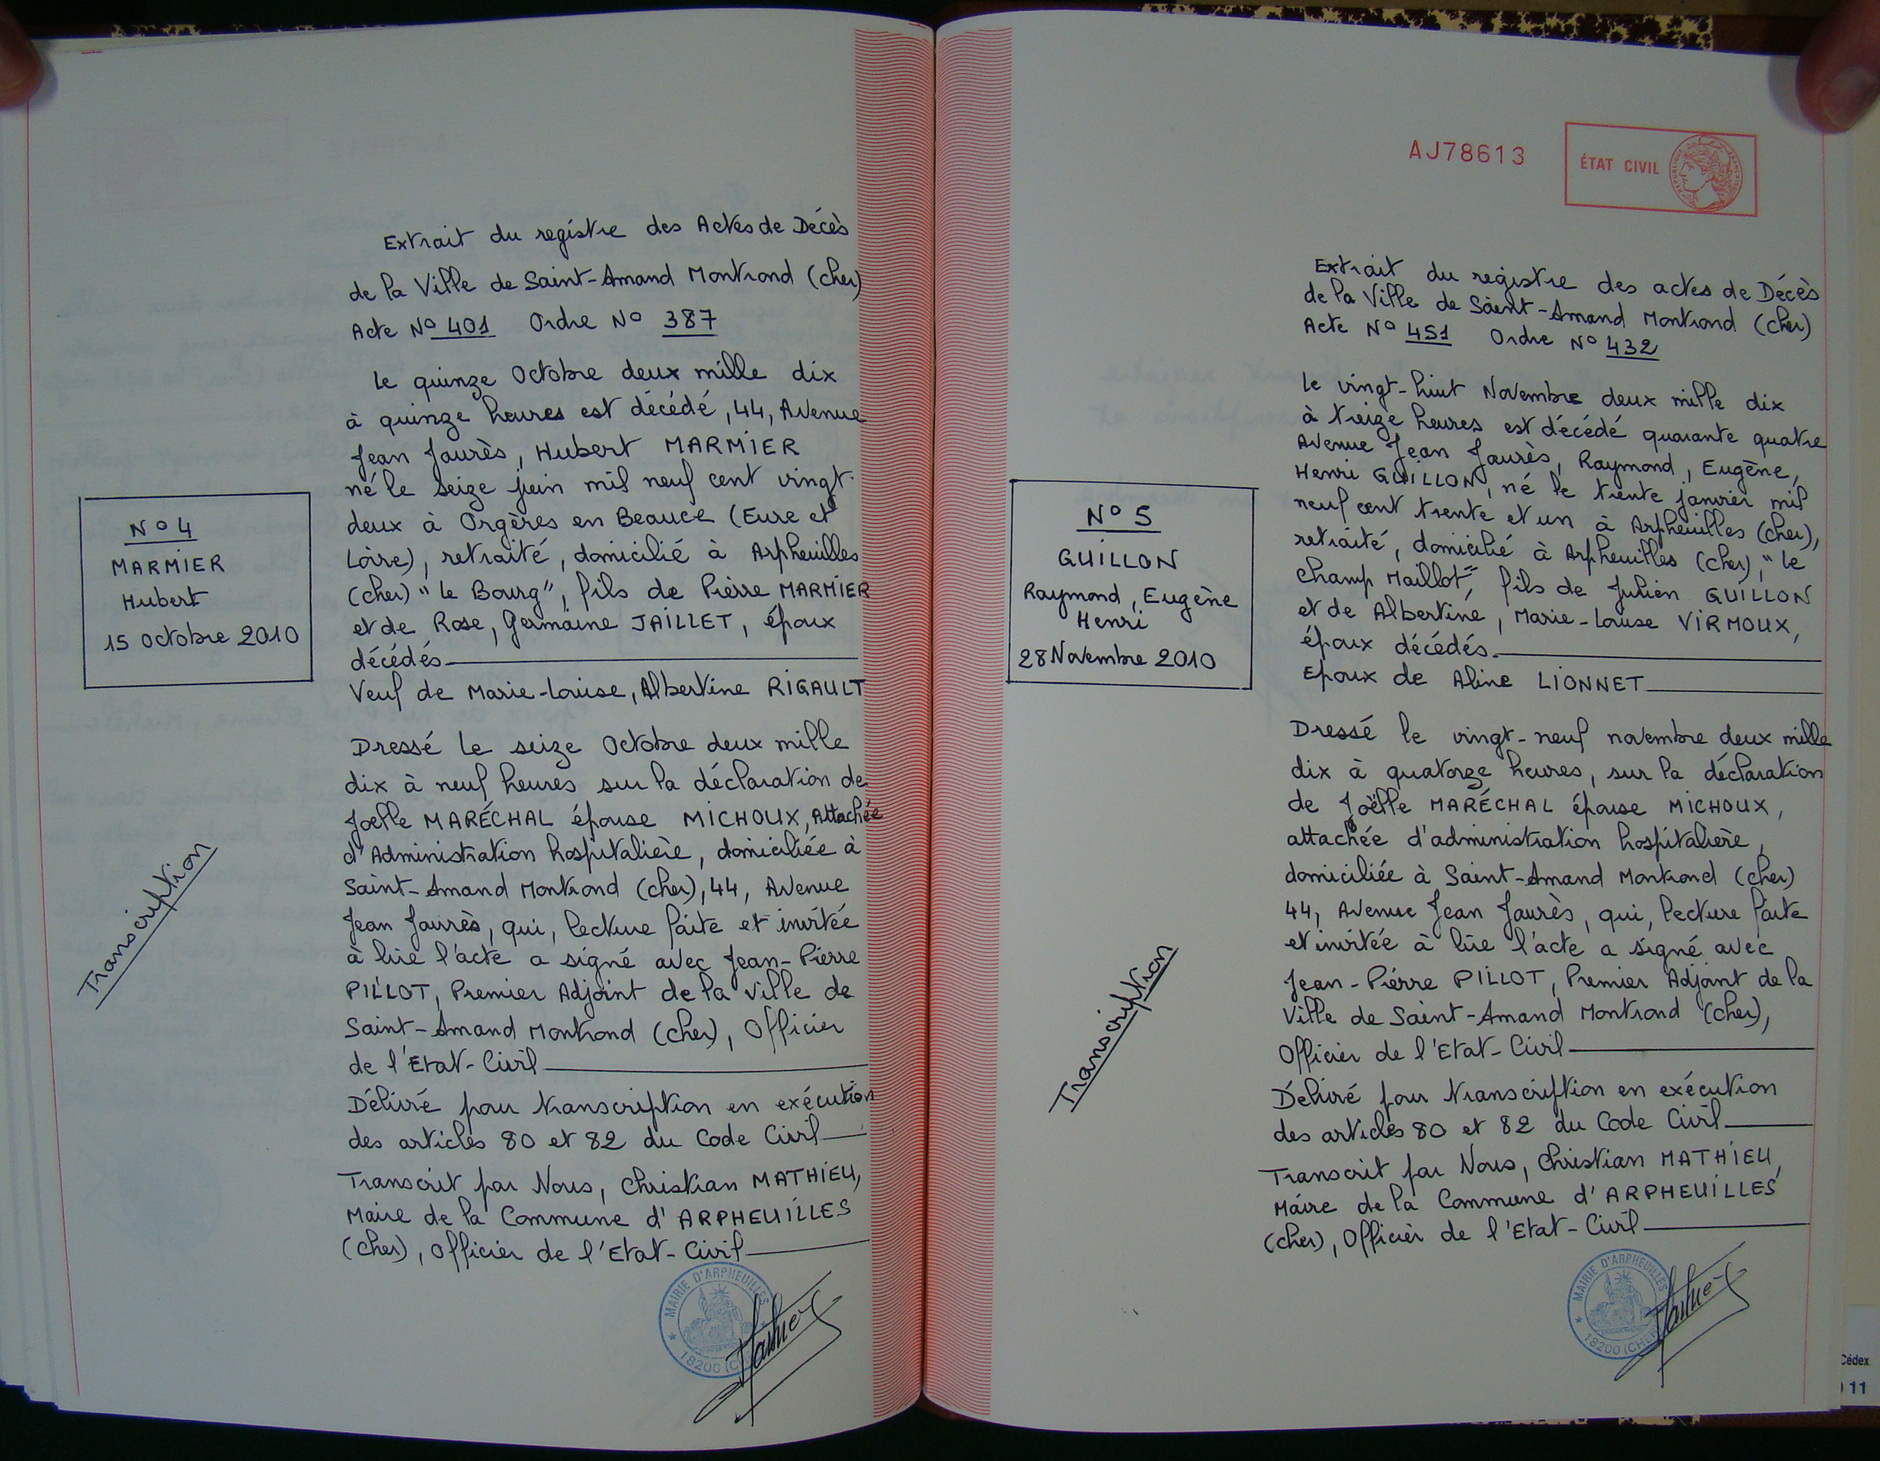 Extrait du registre des Actes de Décès
de la Ville de Saint-Amand Montrond (Cher)
Acte N° 401 Ordre N° 387
Le quinze Octobre deux mille dix
à quinze heures est décédé, 44, Avenue
Jean Jaurès, Hubert MARMIER
né le seize juin mil neuf cent vingt-
deux à Orgères en Beauce (Eure et
Loire), retraité, domicilié à Arpheuilles
(Cher) "Le Bourg", fils de Pierre MARMIER
et de Rose, Germaine JAILLET, époux
décédés
Veuf de Marie-Louise, Albertine RIGAULT
N° 4
MARMIER
Hubert
15 Octobre 2010
Dressé le seize Octobre deux mille
dix à neuf heures sur la déclaration de
Joëlle MARÉCHAL épouse MICHOUX, Attachée
d'Administration hospitalière, domiciliée à
Saint-Amand Montrond (Cher), 44, Avenue
Jean Jaurès, qui, lecture faite et invitée
à lire l'acte a signé avec Jean-Pierre
PILLOT, Premier Adjoint de la Ville de
Saint-Amand Montrond (Cher), Officier
de l'Etat-Civil
Transcription
Délivré pour transcription en exécution
des articles 80 et 82 du Code Civil
Transcrit par Nous, Christian MATHIEU,
Maire de la Commune d'ARPHEUILLES
(Cher), Officier de l'Etat-Civil
MAIRIE D'ARPHEUILLES
18200
AJ78613
ÉTAT CIVIL
Extrait du registre des actes de Décès
de la Ville de Saint-Amand Montrond (Cher)
Acte N° 451 Ordre N° 432
Le vingt-huit Novembre deux mille dix
à treize heures est décédé quarante quatre
Avenue Jean Jaurès, Raymond, Eugène,
Henri GUILLON, né le trente janvier mil
neuf cent trente et un à Arpheuilles (Cher),
retraité, domicilié à Arpheuilles (Cher), "Le
Champ Maillot", fils de Julien GUILLON
et de Albertine, Marie-Louise VIRMOUX,
époux décédés.
Epoux de Aline LIONNET
N° 5
GUILLON
Raymond, Eugène
Henri
28 Novembre 2010
Dressé le vingt-neuf novembre deux mille
dix à quatorze heures, sur la déclaration
de Joëlle MARÉCHAL épouse MICHOUX,
attachée d'administration hospitalière,
domiciliée à Saint-Amand Montrond (Cher)
44, Avenue Jean Jaurès, qui, lecture faite
et invitée à lire l'acte a signé avec
Jean-Pierre PILLOT, Premier Adjoint de la
Ville de Saint-Amand Montrond (Cher),
Officier de l'Etat-Civil
Transcription
Délivré pour transcription en exécution
des articles 80 et 82 du Code Civil
Transcrit par Nous, Christian MATHIEU,
Maire de la Commune d'ARPHEUILLES
(Cher), Officier de l'Etat-Civil
MAIRIE D'ARPHEUILLES
18200 (CHER)
Cédex
11